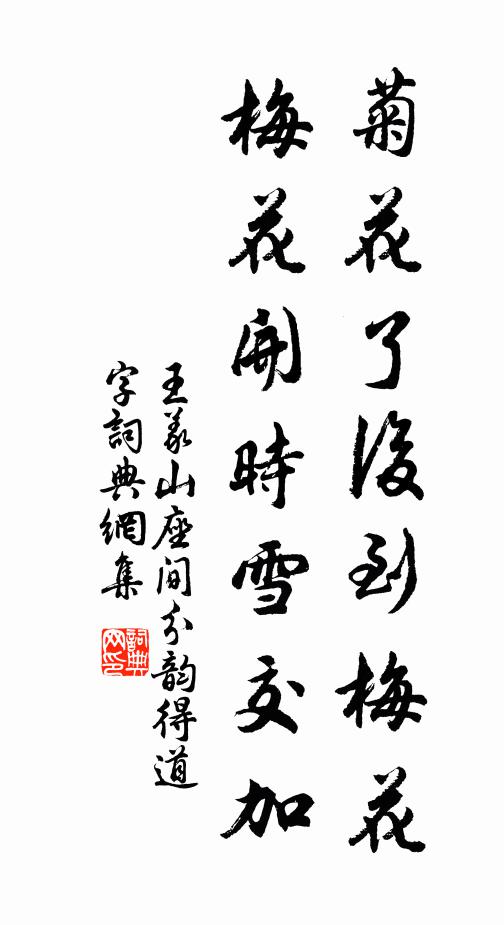 菊花了後到梅花
梅花開時雪交加
王義山座间分韵得道
字詞典網集
詞典
网印